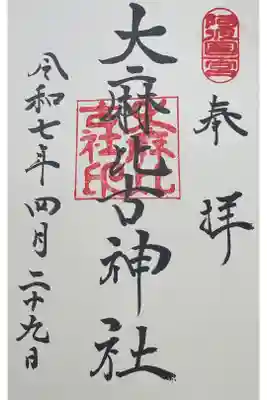 阿波國一宮
奉拝
大麻比古神社
大麻比古社印
令和七年四月二十九日